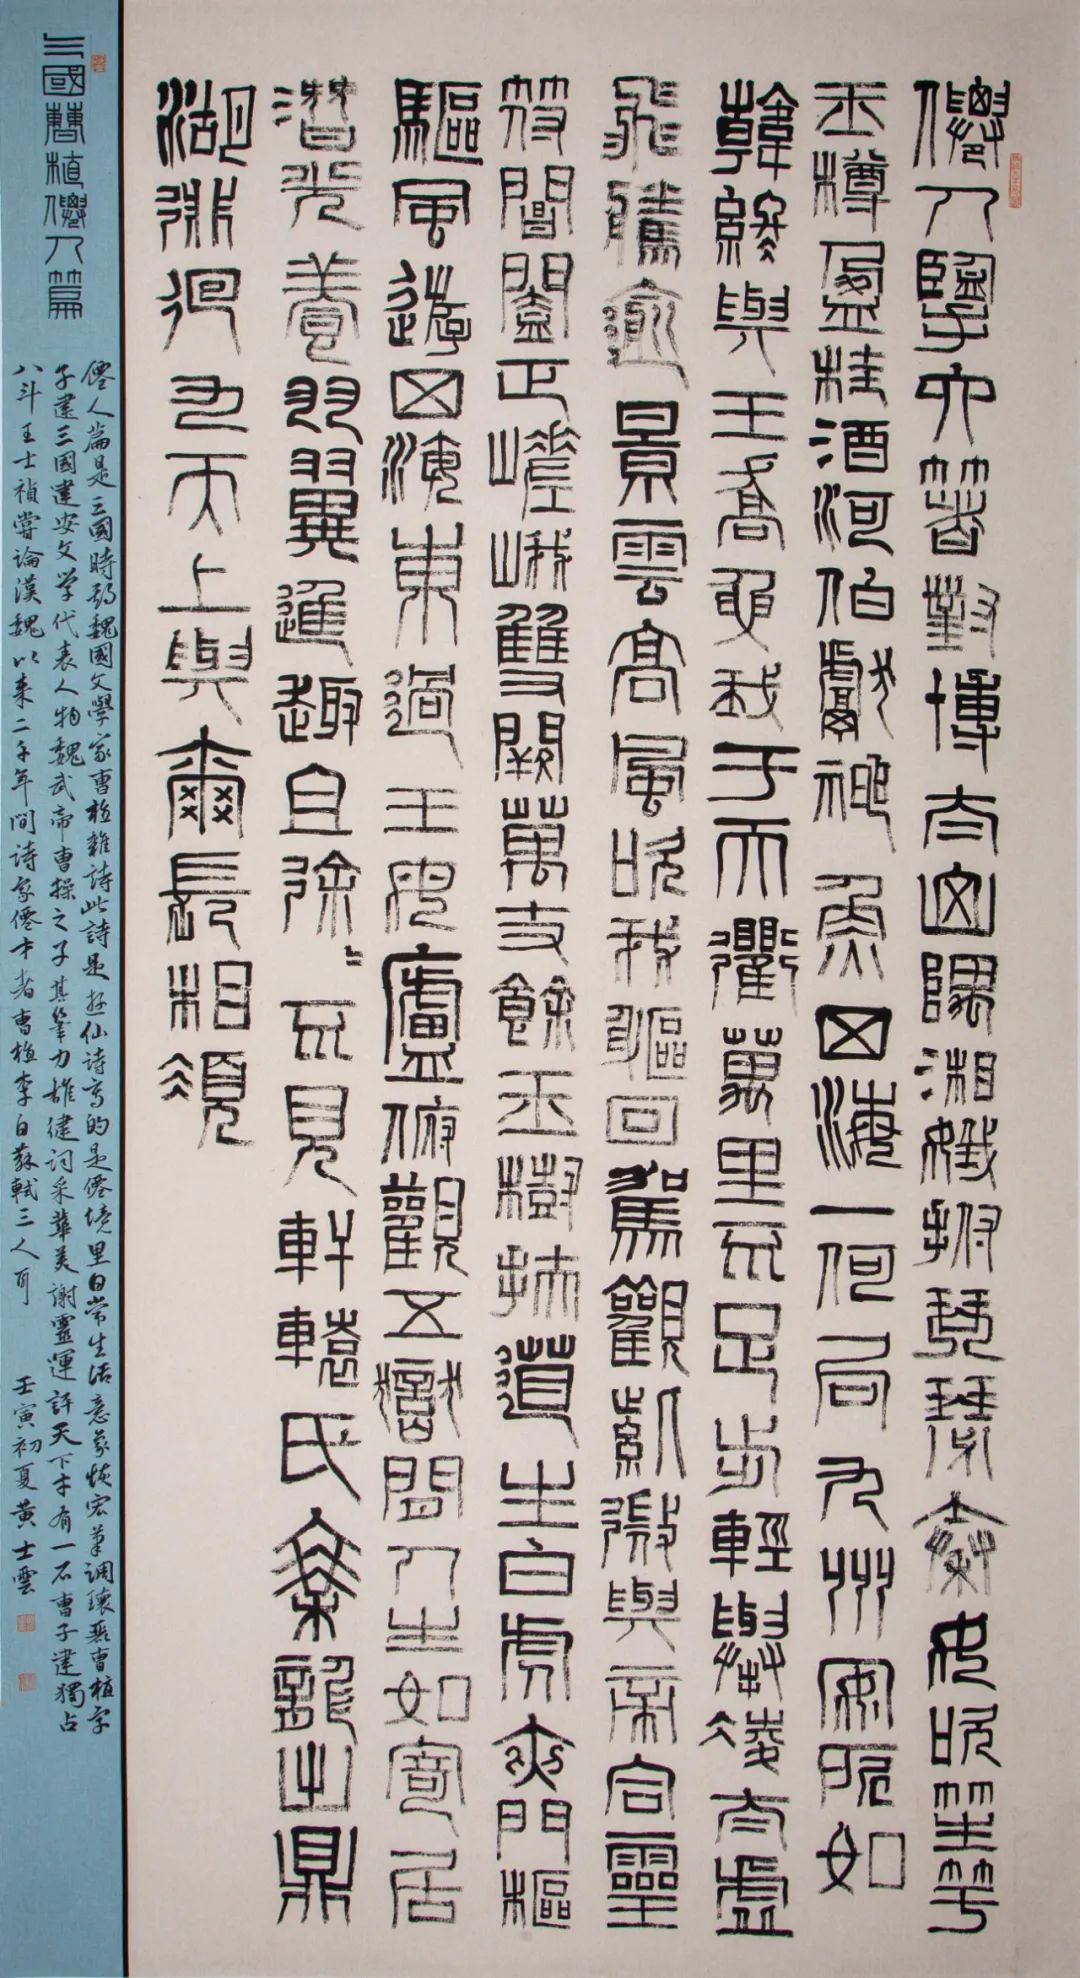 僊人擥六箸對博太山隅湘娥拊琴瑟秦女吹笙竽
玉樽盈桂酒河伯獻神魚四海一何局九州安所如
韓終與王喬要我于天衢萬里不足步輕舉凌太虛
飛騰逾景雲高風吹我軀回駕觀紫微與帝合靈
符閶闔正嵯峨雙闕萬丈餘玉樹扶道生白虎夾門樞
驅風遊四海東過王母廬俯觀五嶽間人生如寄居
潛光養羽翼進趨且徐〻不見軒轅氏乘龍出鼎
湖徘徊九天上與爾長相須
三國曹植僊人篇
僊人篇是三國時期魏國文學家曹植雜詩此詩是遊仙詩寫的是僊境里日常生活意象恢宏筆調瓌麗曹植字
子建三國建安文学代表人物魏武帝曹操之子其筆力雄健詞采華美謝靈運評天下才有一石曹子建獨占
八斗王士禎嘗論漢魏以来二千年間詩家僊才者曹植李白蘇軾三人耳
壬寅初夏黄士雲